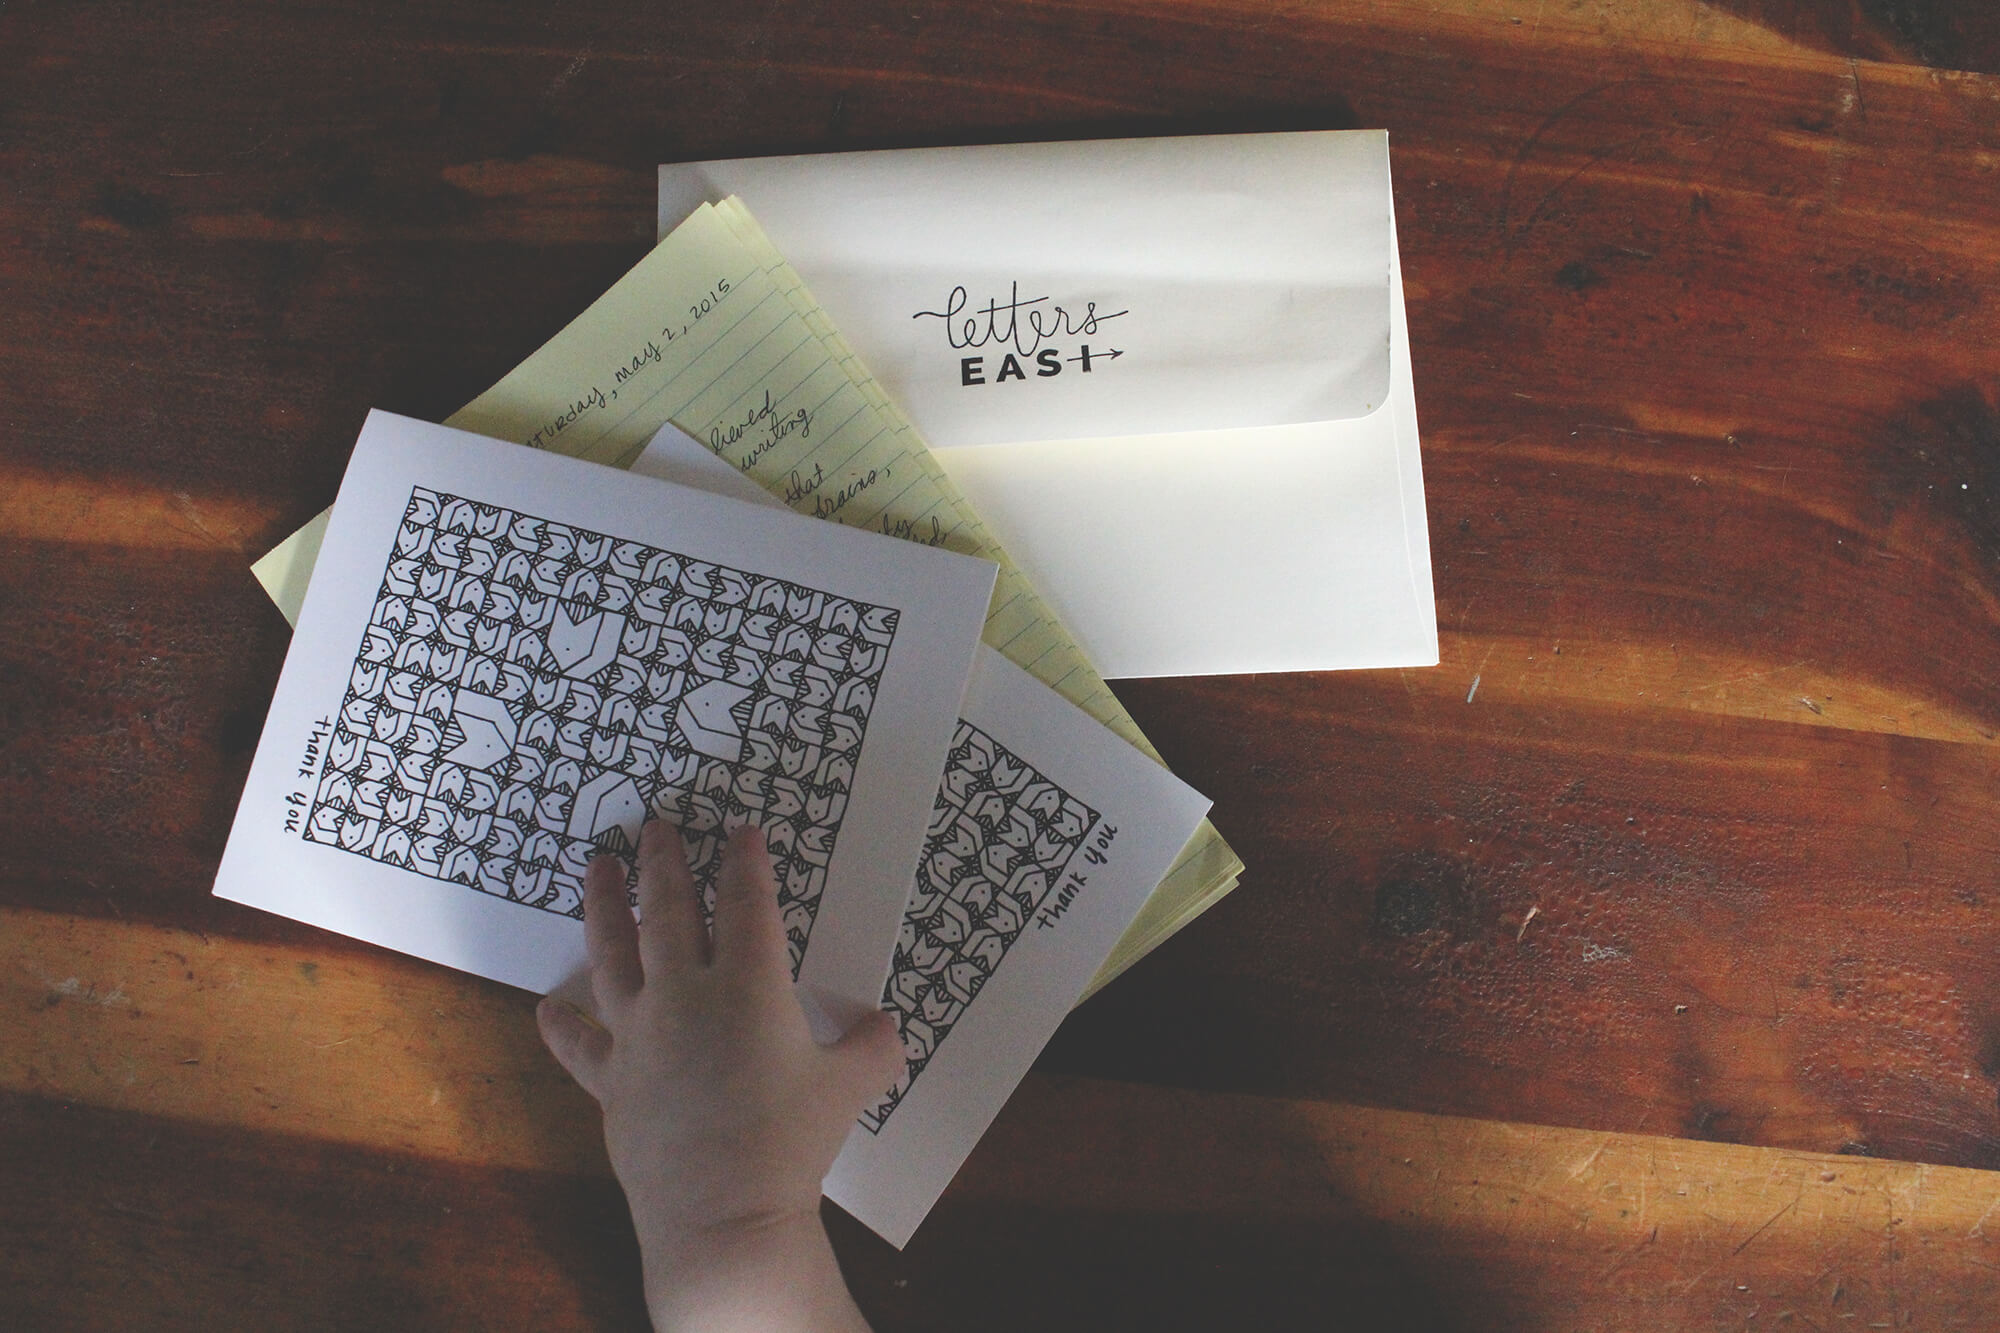 letters
EAST
Saturday, may 2, 2015
lieved
writing
that
brains,
thank you
thank you